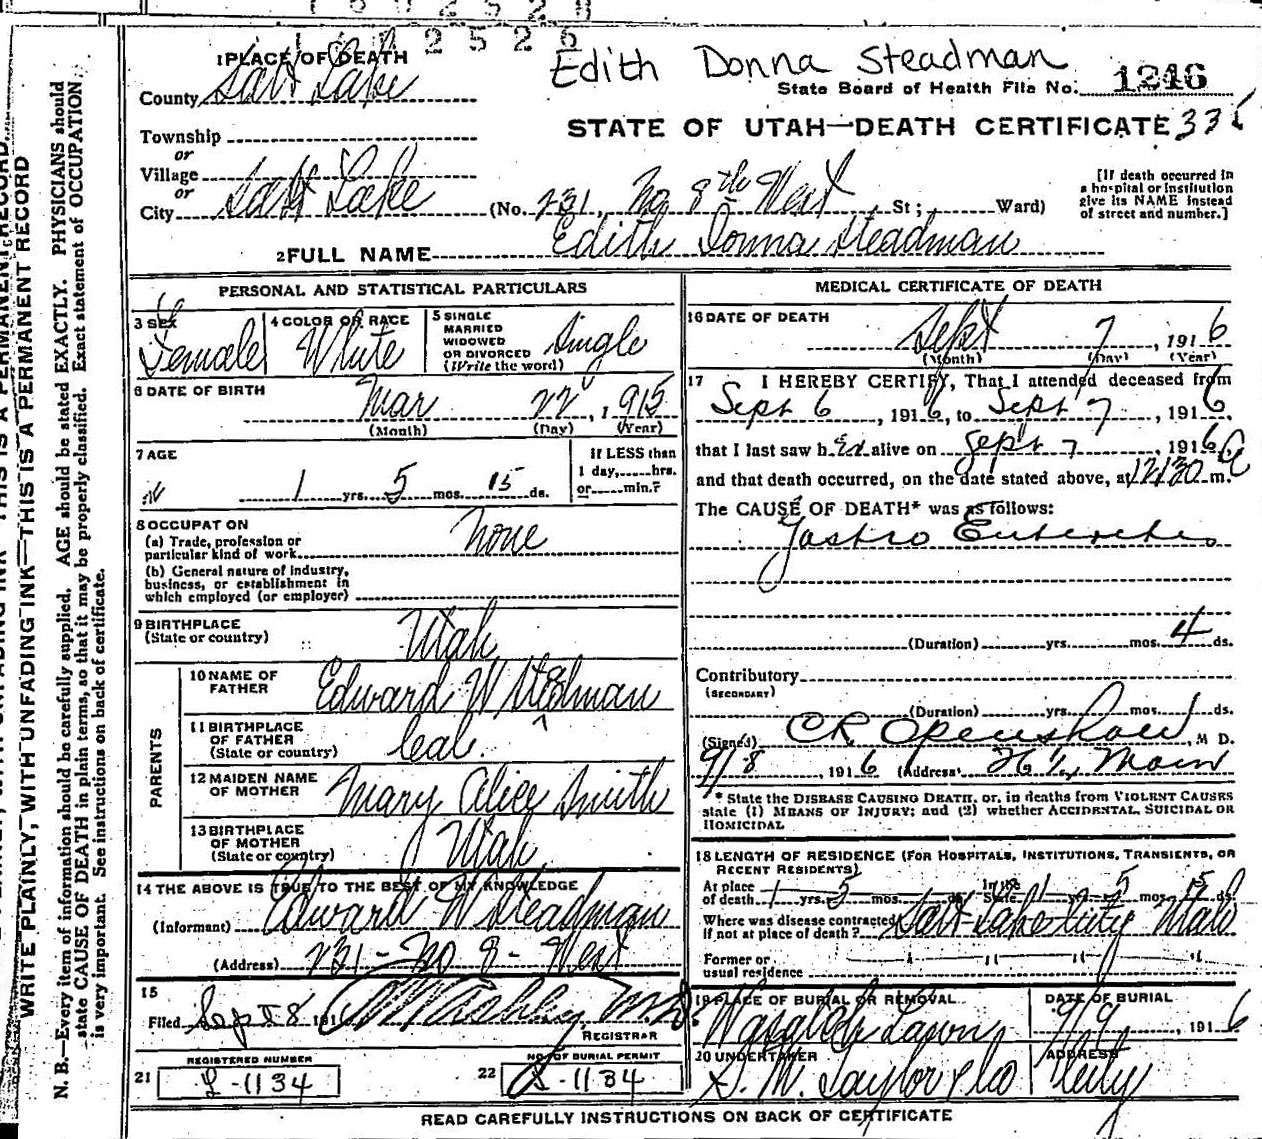 2526
Edith Donna Steadman
1 PLACE OF DEATH
County Salt Lake
State Board of Health File No. 1246
STATE OF UTAH—DEATH CERTIFICATE 335
Township
or
Village
or
City Salt Lake (No. 231, No 8th West, St; Ward)
[If death occurred in a hospital or institution give its NAME instead of street and number.]
2 FULL NAME Edith Donna Steadman
PERSONAL AND STATISTICAL PARTICULARS
3 SEX Female
4 COLOR OR RACE White
5 SINGLE MARRIED WIDOWED OR DIVORCED (Write the word) Single
6 DATE OF BIRTH Mar 22, 1915
(Month) (Day) (Year)
7 AGE
1 yrs. 5 mos. 15 ds.
If LESS than 1 day, hrs. or min.?
8 OCCUPATION
(a) Trade, profession or particular kind of work None
(b) General nature of industry, business, or establishment in which employed (or employer)
9 BIRTHPLACE (State or country) Utah
PARENTS
10 NAME OF FATHER Edward W Steadman
11 BIRTHPLACE OF FATHER (State or country) Cal.
12 MAIDEN NAME OF MOTHER Mary Alice Smith
13 BIRTHPLACE OF MOTHER (State or country) Utah
14 THE ABOVE IS TRUE TO THE BEST OF MY KNOWLEDGE
(Informant) Edward W Steadman
(Address) 231 - No 8 - West
15
Filed Sept 8 191 M.D.
REGISTRAR
REGISTERED NUMBER
21 L-1134
NO. OF BURIAL PERMIT
22 L-1134
MEDICAL CERTIFICATE OF DEATH
16 DATE OF DEATH
Sept 7, 1916
(Month) (Day) (Year)
17 I HEREBY CERTIFY, That I attended deceased from
Sept 6, 1916, to Sept 7, 1916,
that I last saw her alive on Sept 7, 1916
and that death occurred, on the date stated above, at 12/30 A m.
The CAUSE OF DEATH* was as follows:
Gastro Enteritis
(Duration) yrs. mos. 4 ds.
Contributory
(SECONDARY)
(Duration) yrs. mos. ds.
(Signed) CR Openshaw, M D.
9/8, 1916 (Address) 26 1/2 Main
* State the DISEASE CAUSING DEATH, or, in deaths from VIOLENT CAUSES state (1) MEANS OF INJURY; and (2) whether ACCIDENTAL, SUICIDAL OR HOMICIDAL
18 LENGTH OF RESIDENCE (FOR HOSPITALS, INSTITUTIONS, TRANSIENTS, OR RECENT RESIDENTS)
At place of death 1 yrs. 5 mos. In the State 1 yrs 5 mos. 15 ds.
Where was disease contracted if not at place of death? Salt Lake City Utah
Former or usual residence " " " "
19 PLACE OF BURIAL OR REMOVAL Wasatch Lawn
DATE OF BURIAL 9/9, 1916
20 UNDERTAKER S. M. Taylor & Co
ADDRESS City
READ CAREFULLY INSTRUCTIONS ON BACK OF CERTIFICATE
WRITE PLAINLY, WITH UNFADING INK—THIS IS A PERMANENT RECORD
N. B.—Every item of information should be carefully supplied. AGE should be stated EXACTLY. PHYSICIANS should
state CAUSE OF DEATH in plain terms, so that it may be properly classified. Exact statement of OCCUPATION
is very important. See instructions on back of certificate.